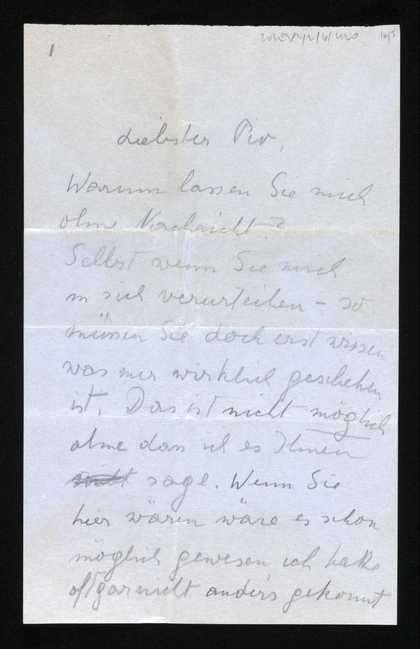 1
Liebster Piv,
Warum lassen Sie mich
ohne Nachricht?
Selbst wenn Sie mich
in sich verurteilen – so
müssen Sie doch erst wissen
was mir wirklich geschehen
ist. Das ist nicht möglich
ohne dass ich es Ihnen
sage. Wenn Sie
hier wären wäre es schon
möglich gewesen ich hätte
oft gar nicht anders gekonnt